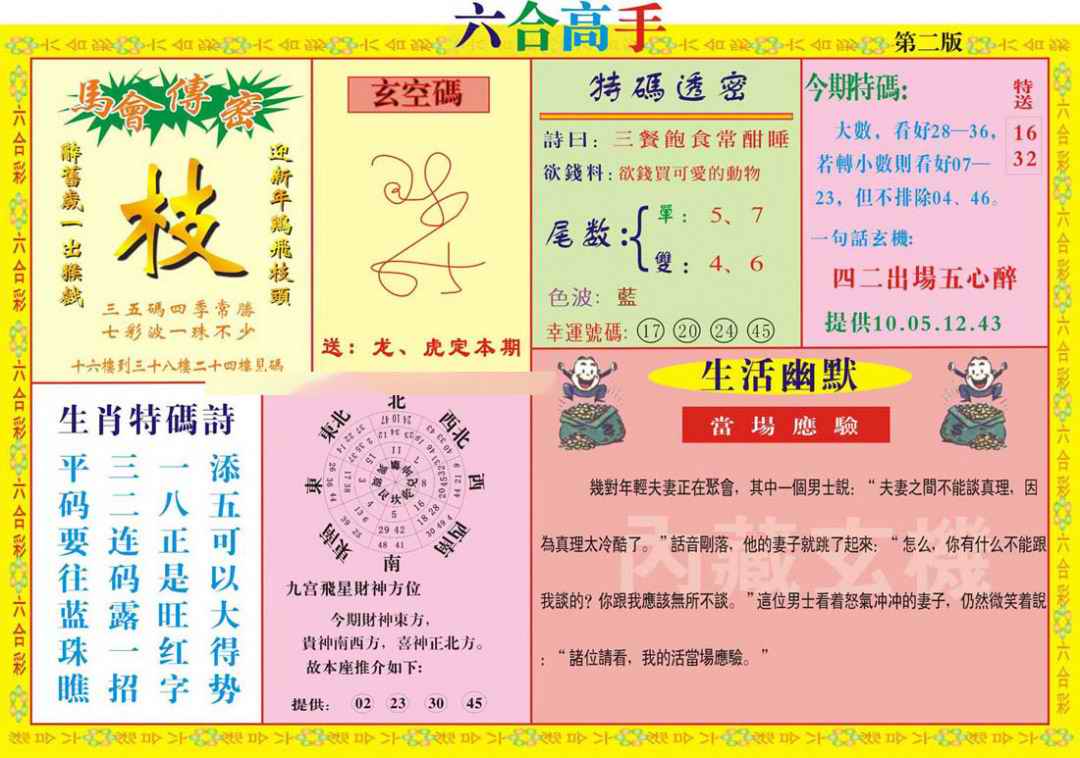 六合高手
第二版
馬會傳密
迎新年鷄飛枝頭
辭舊歲一出猴戲
枝
三五碼四季常勝
七彩波一珠不少
十六樓到三十八樓二十四樓見碼
玄空碼
送：龙、虎定本期
特碼透密
詩曰：三餐飽食常酣睡
欲錢料：欲錢買可愛的動物
尾数：
單：5、7
雙：4、6
色波：藍
幸運號碼：17 20 24 45
今期特碼:
特送
16
32
大數，看好28—36，
若轉小數則看好07—
23，但不排除04、46。
一句話玄機:
四二出場五心醉
提供10.05.12.43
生肖特碼詩
添五可以大得势
一八正是旺红字
三二连码露一招
平码要往蓝珠瞧
北
西北
西
西南
南
東南
東
東北
九宫飛星財神方位
今期財神東方，
貴神南西方，喜神正北方。
故本座推介如下:
提供: 02 23 30 45
生活幽默
當場應驗
幾對年輕夫妻正在聚會，其中一個男士說：“夫妻之間不能談真理，因
為真理太冷酷了。”話音剛落，他的妻子就跳了起來：“怎么，你有什么不能跟
我談的？你跟我應該無所不談。”這位男士看着怒氣冲冲的妻子，仍然微笑着說
：“諸位請看，我的活當場應驗。”
內藏玄機